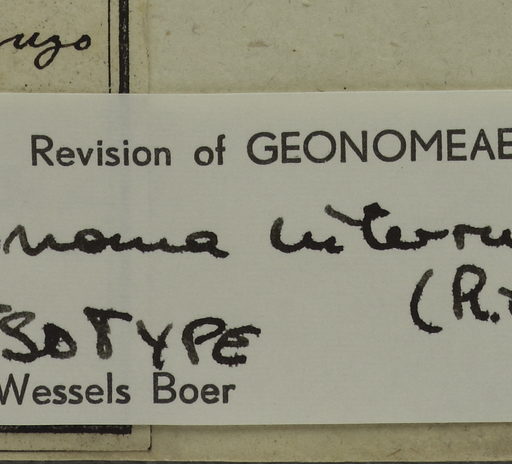 Revision of GEONOMEAE
noma interru
(R.
ISOTYPE
Wessels Boer